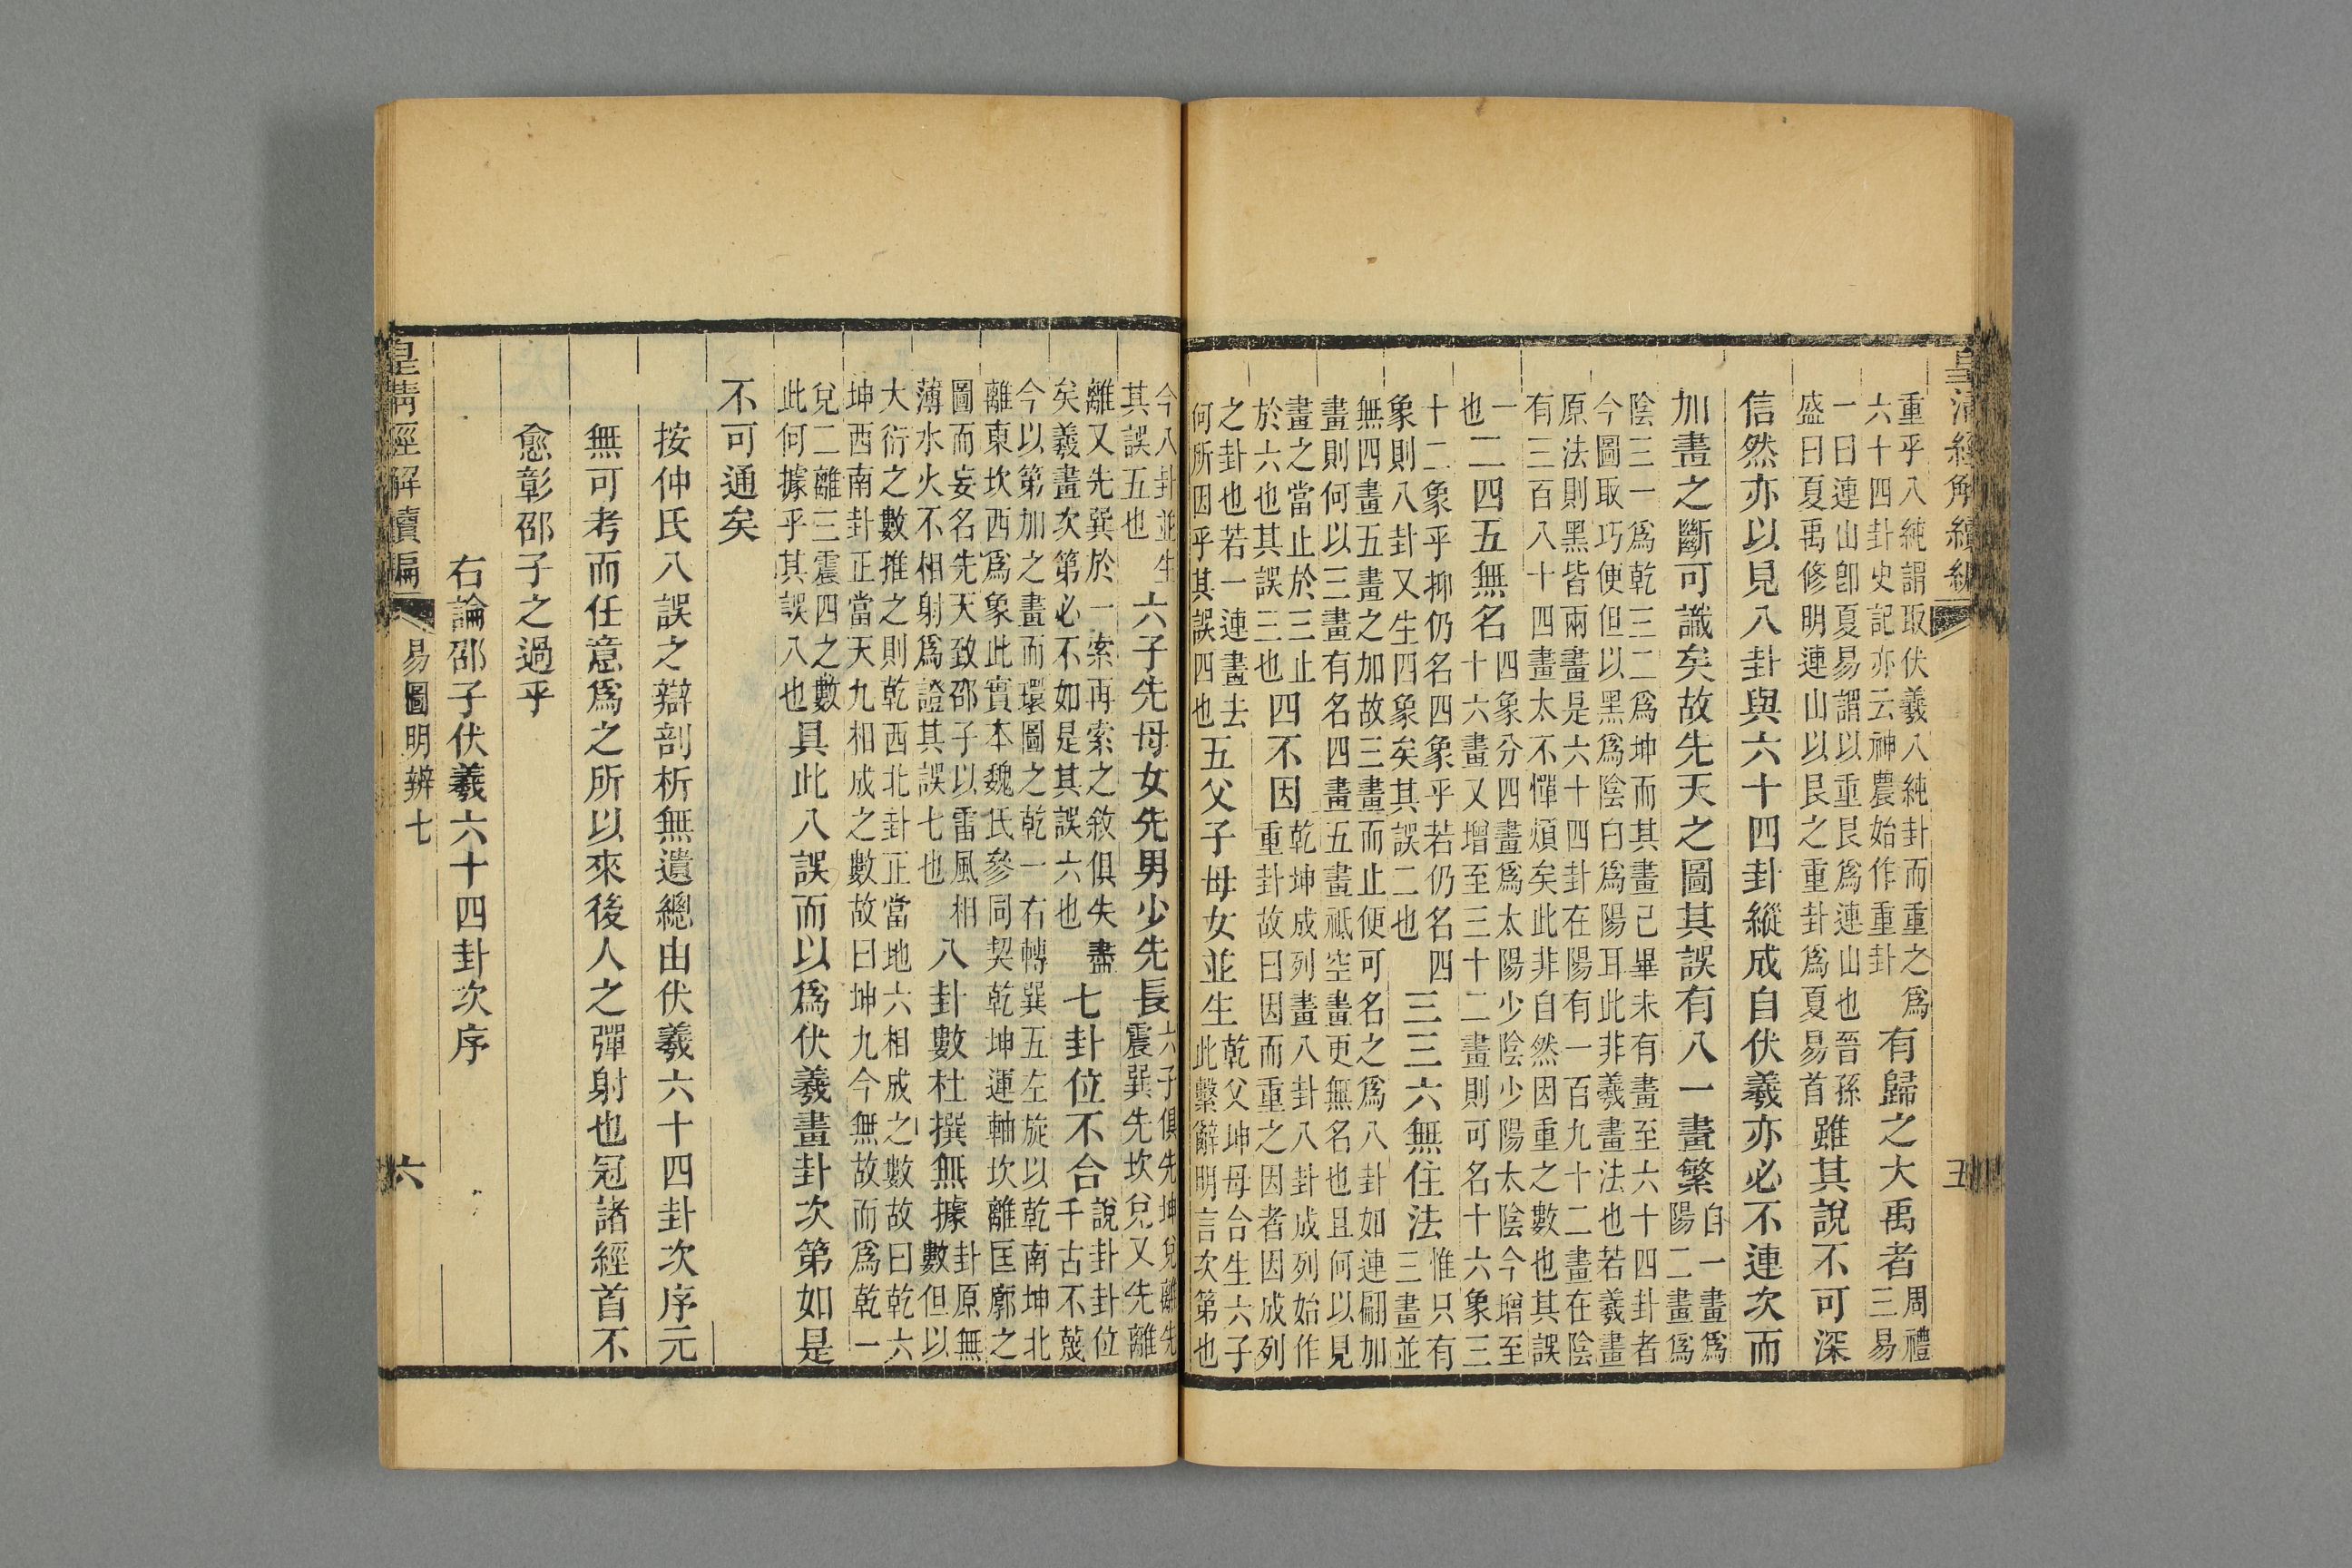 皇清經解續編
五
重乎八純謂取伏羲八純卦而重之爲
六十四卦史記亦云神農始作重卦
有歸之大禹者
周禮
三易
一曰連山卽夏易謂以重艮爲連山也晉孫
盛曰夏禹修明連山以艮之重卦爲夏易首
雖其說不可深
信然亦以見八卦與六十四卦縱成自伏羲亦必不連次而
加畫之斷可識矣故先天之圖其誤有八一畫繁
自一畫爲
陽二畫爲
陰三一爲乾三二爲坤而其畫已畢未有畫至六十四卦者
今圖取巧便但以黑爲陰白爲陽耳此非羲畫法也若羲畫
原法則黑皆兩畫是六十四卦在陽有一百九十二畫在陰
有三百八十四畫太不憚煩矣此非自然因重之數也其誤
一
也
二四五無名
四象分四畫爲太陽少陰少陽太陰今增至
十六畫又增至三十二畫則可名十六象三
十二象乎抑仍名四象乎若仍名四
象則八卦又生四象矣其誤二也
三三六無住法
惟只有
三畫並
無四畫五畫之加故三畫而止便可名之爲八卦如連翩加
畫則何以三畫有名四畫五畫祗空畫更無名也且何以見
畫之當止於三止
於六也其誤三也
四不因
乾坤成列畫八卦八卦成列始作
重卦故曰因而重之因者因成列
之卦也若一連畫去
何所因乎其誤四也
五父子母女並生
乾父坤母合生六子
此繫辭明言次第也
今八卦並生
其誤五也
六子先母女先男少先長
六子俱先坤兌離先
震巽先坎兌又先離
離又先巽於一索再索之敘俱失盡
矣羲畫次第必不如是其誤六也
七卦位不合
說卦卦位
千古不蔑
今以第加之畫而環圖之乾一右轉巽五左旋以乾南坤北
離東坎西爲象此實本魏氏參同契乾坤運軸坎離匡廓之
圖而妄名先天致邵子以雷風相
薄水火不相射爲證其誤七也
八卦數杜撰無據
卦原無
數但以
大衍之數推之則乾西北卦正當地六相成之數故曰乾六
坤西南卦正當天九相成之數故曰坤九今無故而爲乾一
兌二離三震四之數
此何據乎其誤八也
具此八誤而以爲伏羲畫卦次第如是
不可通矣
按仲氏八誤之辯剖析無遺總由伏羲六十四卦次序元
無可考而任意爲之所以來後人之彈射也冠諸經首不
愈彰邵子之過乎
右論邵子伏羲六十四卦次序
皇清經解續編
易圖明辨七
六